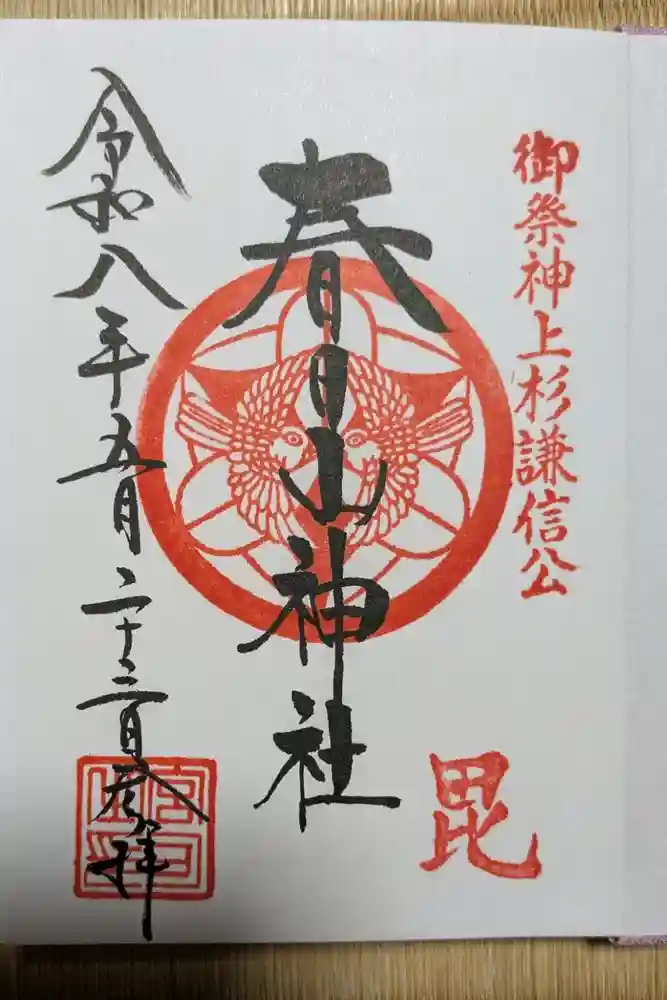 御祭神上杉謙信公
毘
春日山神社
令和八年五月二十三日参拝